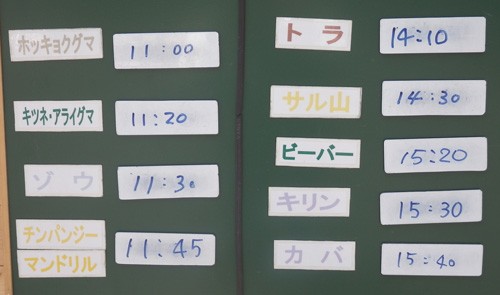 ホッキョクグマ 11:00
キツネ・アライグマ 11:20
ゾウ 11:30
チンパンジー
マンドリル 11:45
トラ 14:10
サル山 14:30
ビーバー 15:20
キリン 15:30
カバ 15:40